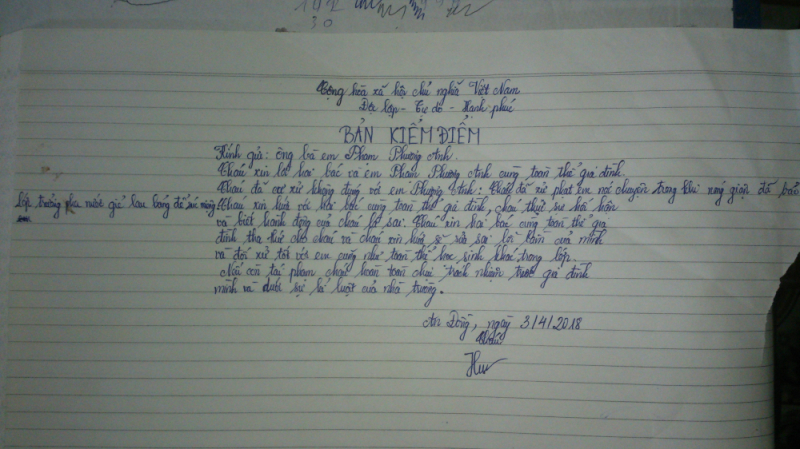 Cộng hòa xã hội chủ nghĩa Việt Nam
Độc lập - Tự do - Hạnh phúc
BẢN KIỂM ĐIỂM
Kính gửi: ông bà em Phạm Phương Anh.
Cháu xin lỗi hai bác và em Phạm Phương Anh cùng toàn thể gia đình.
Cháu đã cư xử không đúng với em Phương Anh: Cháu đã xử phạt em nói chuyện trong khi nóng giận đã bảo
lớp trưởng pha nước giẻ lau bảng để
Cháu xin hứa với hai bác cùng toàn thể gia đình, cháu thực sự hối hận
và biết hành động của cháu là sai. Cháu xin hai bác cùng toàn thể gia
đình tha thứ cho cháu và cháu xin hứa sẽ sửa sai lỗi lầm của mình
và đối xử tốt với em cũng như toàn thể học sinh khác trong lớp.
Nếu còn tái phạm cháu hoàn toàn chịu trách nhiệm trước gia đình
mình và dưới sự kỉ luật của nhà trường.
An Đồng, ngày 3/4/2018
Cháu